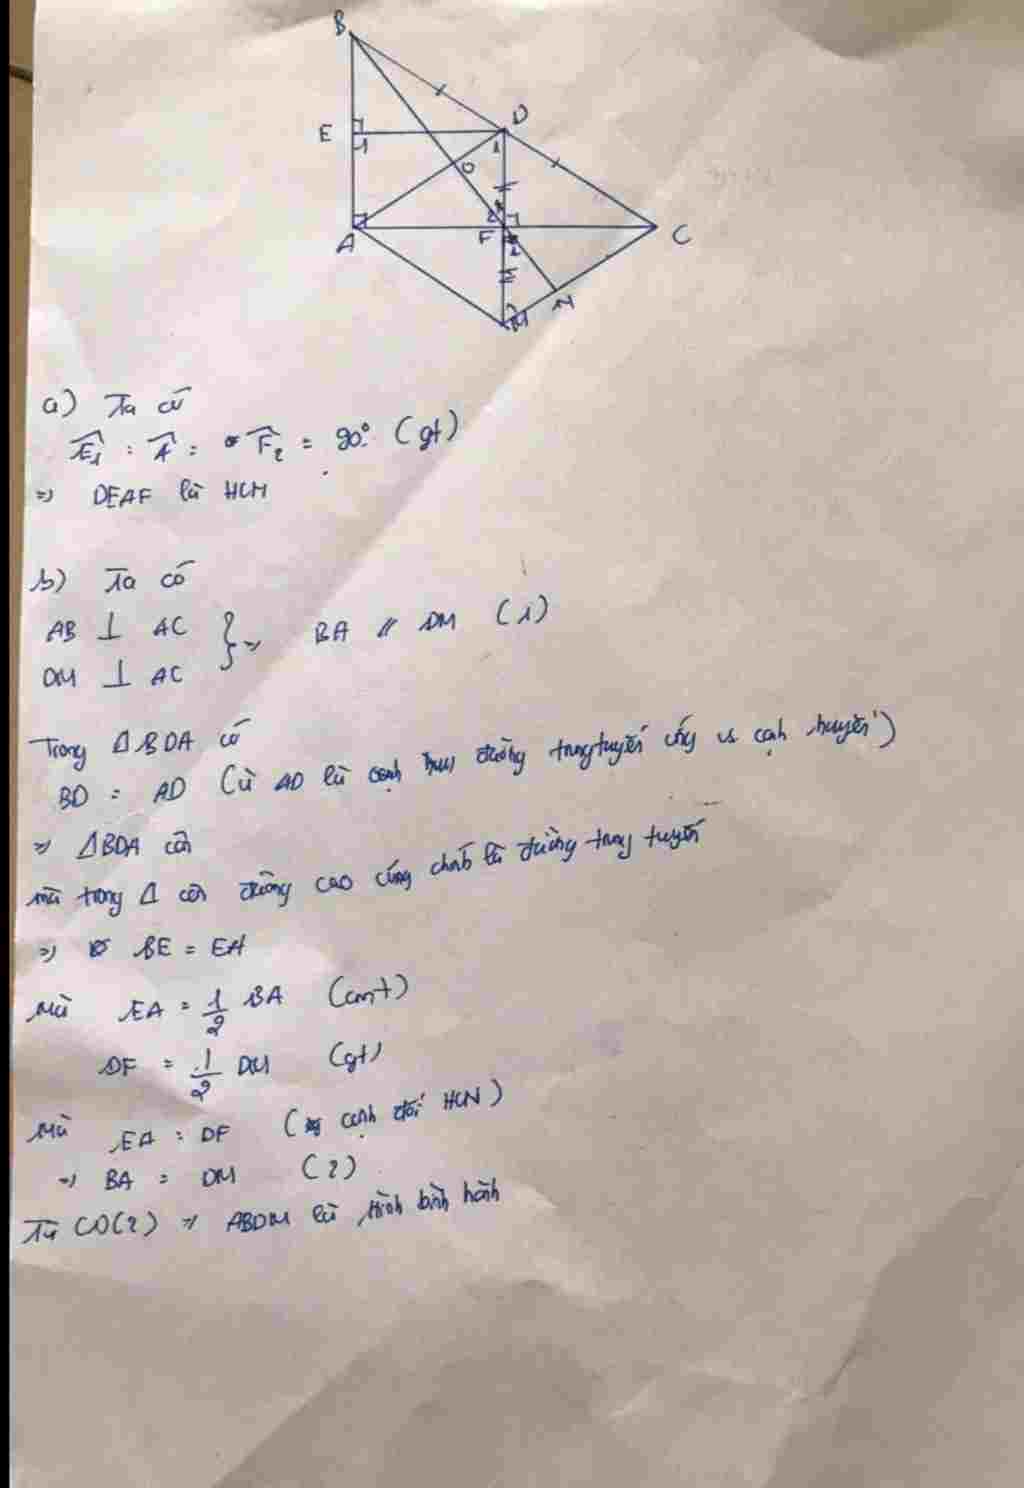 B
E
D
1
1
O
A
2
F
2
C
N
M
a) Ta có
Ê1 = Â = F̂2 = 90° (gt)
=> DEAF là HCN
b) Ta có
AB ⊥ AC
DM ⊥ AC } => BA // DM (1)
Trong Δ BDA có
BD = AD (vì AD là đường trung tuyến ứng vs cạnh huyền)
=> ΔBDA cân
mà trong Δ cân đường cao cũng chính là đường trung tuyến
=> BE = EA
Mà EA = 1/2 BA (cmt)
DF = 1/2 DM (gt)
Mà EA = DF (cạnh đối HCN)
=> BA = DM (2)
Từ (1)(2) => ABDM là hình bình hành